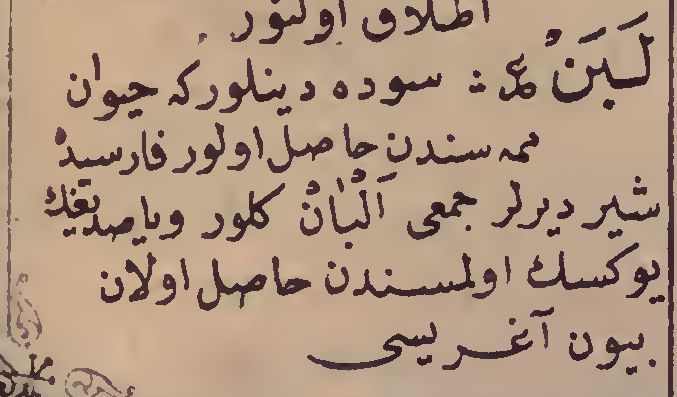 اطلاق اولنور .
لَبَنْ : سوده دینلورکه حیوان
ممه سندن حاصل اولور فارسیده
شیر دیرلر جمعی اَلْبَانْ کلور ویا یصدیغك
یوکسك اولمسندن حاصل اولان
بیون آغریسی